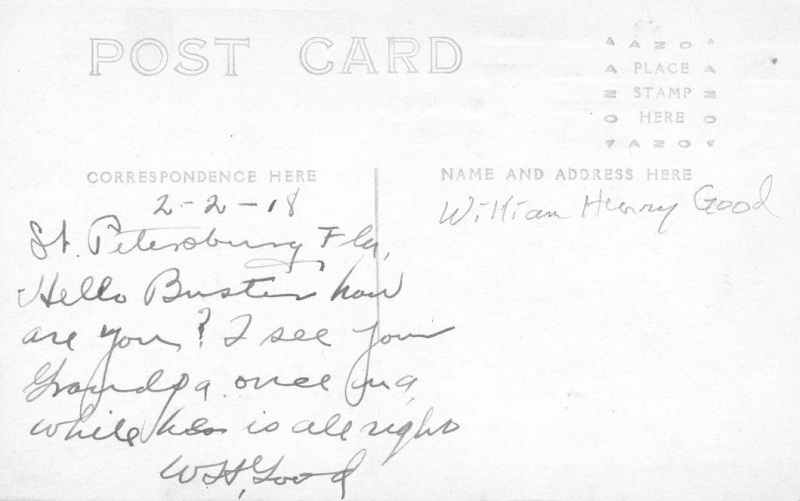 POST CARD
AZO
A PLACE A
Z STAMP Z
O HERE O
AZO
CORRESPONDENCE HERE
NAME AND ADDRESS HERE
2-2-18
St. Petersburg Fla,
Hello Buster how
are you? I see your
Grandpa once in a
while he is all right
W H, Good
Willian Henry Good